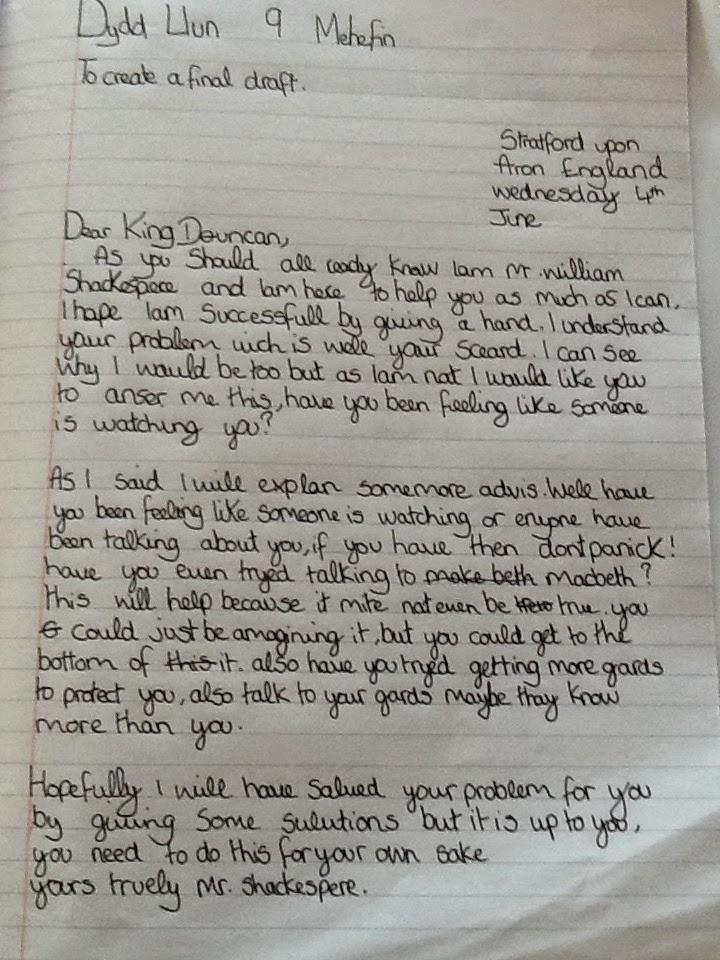 Dydd Llun 9 Mehefin
To create a final draft.
Stratford upon
Aron England
Wednesday 4th
June
Dear King Douncan,
As you Should all ready know Iam Mr william
Shackespere and Iam here to help you as much as Ican.
I hope Iam Successfull by giving a hand. I understand
your problem wich is well your Sceard. I can see
why I would be too but as Iam not I would like you
to anser me this, have you been feeling like someone
is watching you?
As I said I will explan somemore advis. Well have
you been feeling like someone is watching or enyone have
been talking about you, if you have then dont panick!
have you even tryed talking to make beth macbeth?
this will help because it mite not even be true. you
could just be amagining it, but you could get to the
bottom of this it. also have you tryed getting more gards
to protect you, also talk to your gards maybe thay know
more than you.
Hopefully I will have salued your problem for you
by giving some sulutions but it is up to you,
you need to do this for your own sake
yours truely Mr. Shackespere.